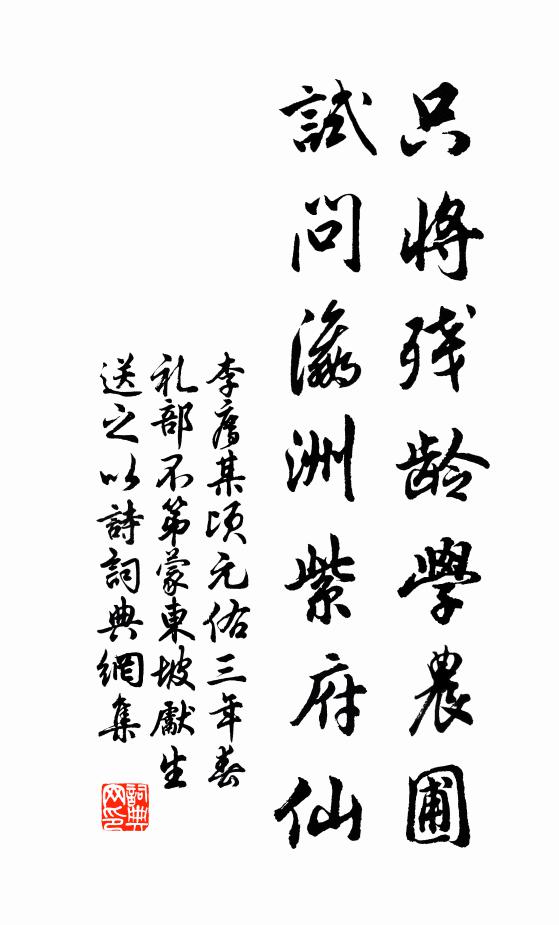 只将残龄學農圃
試問瀛洲紫府仙
李廌某頃元佑三年春
礼部不第蒙東坡獻生
送之以詩詞典網集
詞典网印